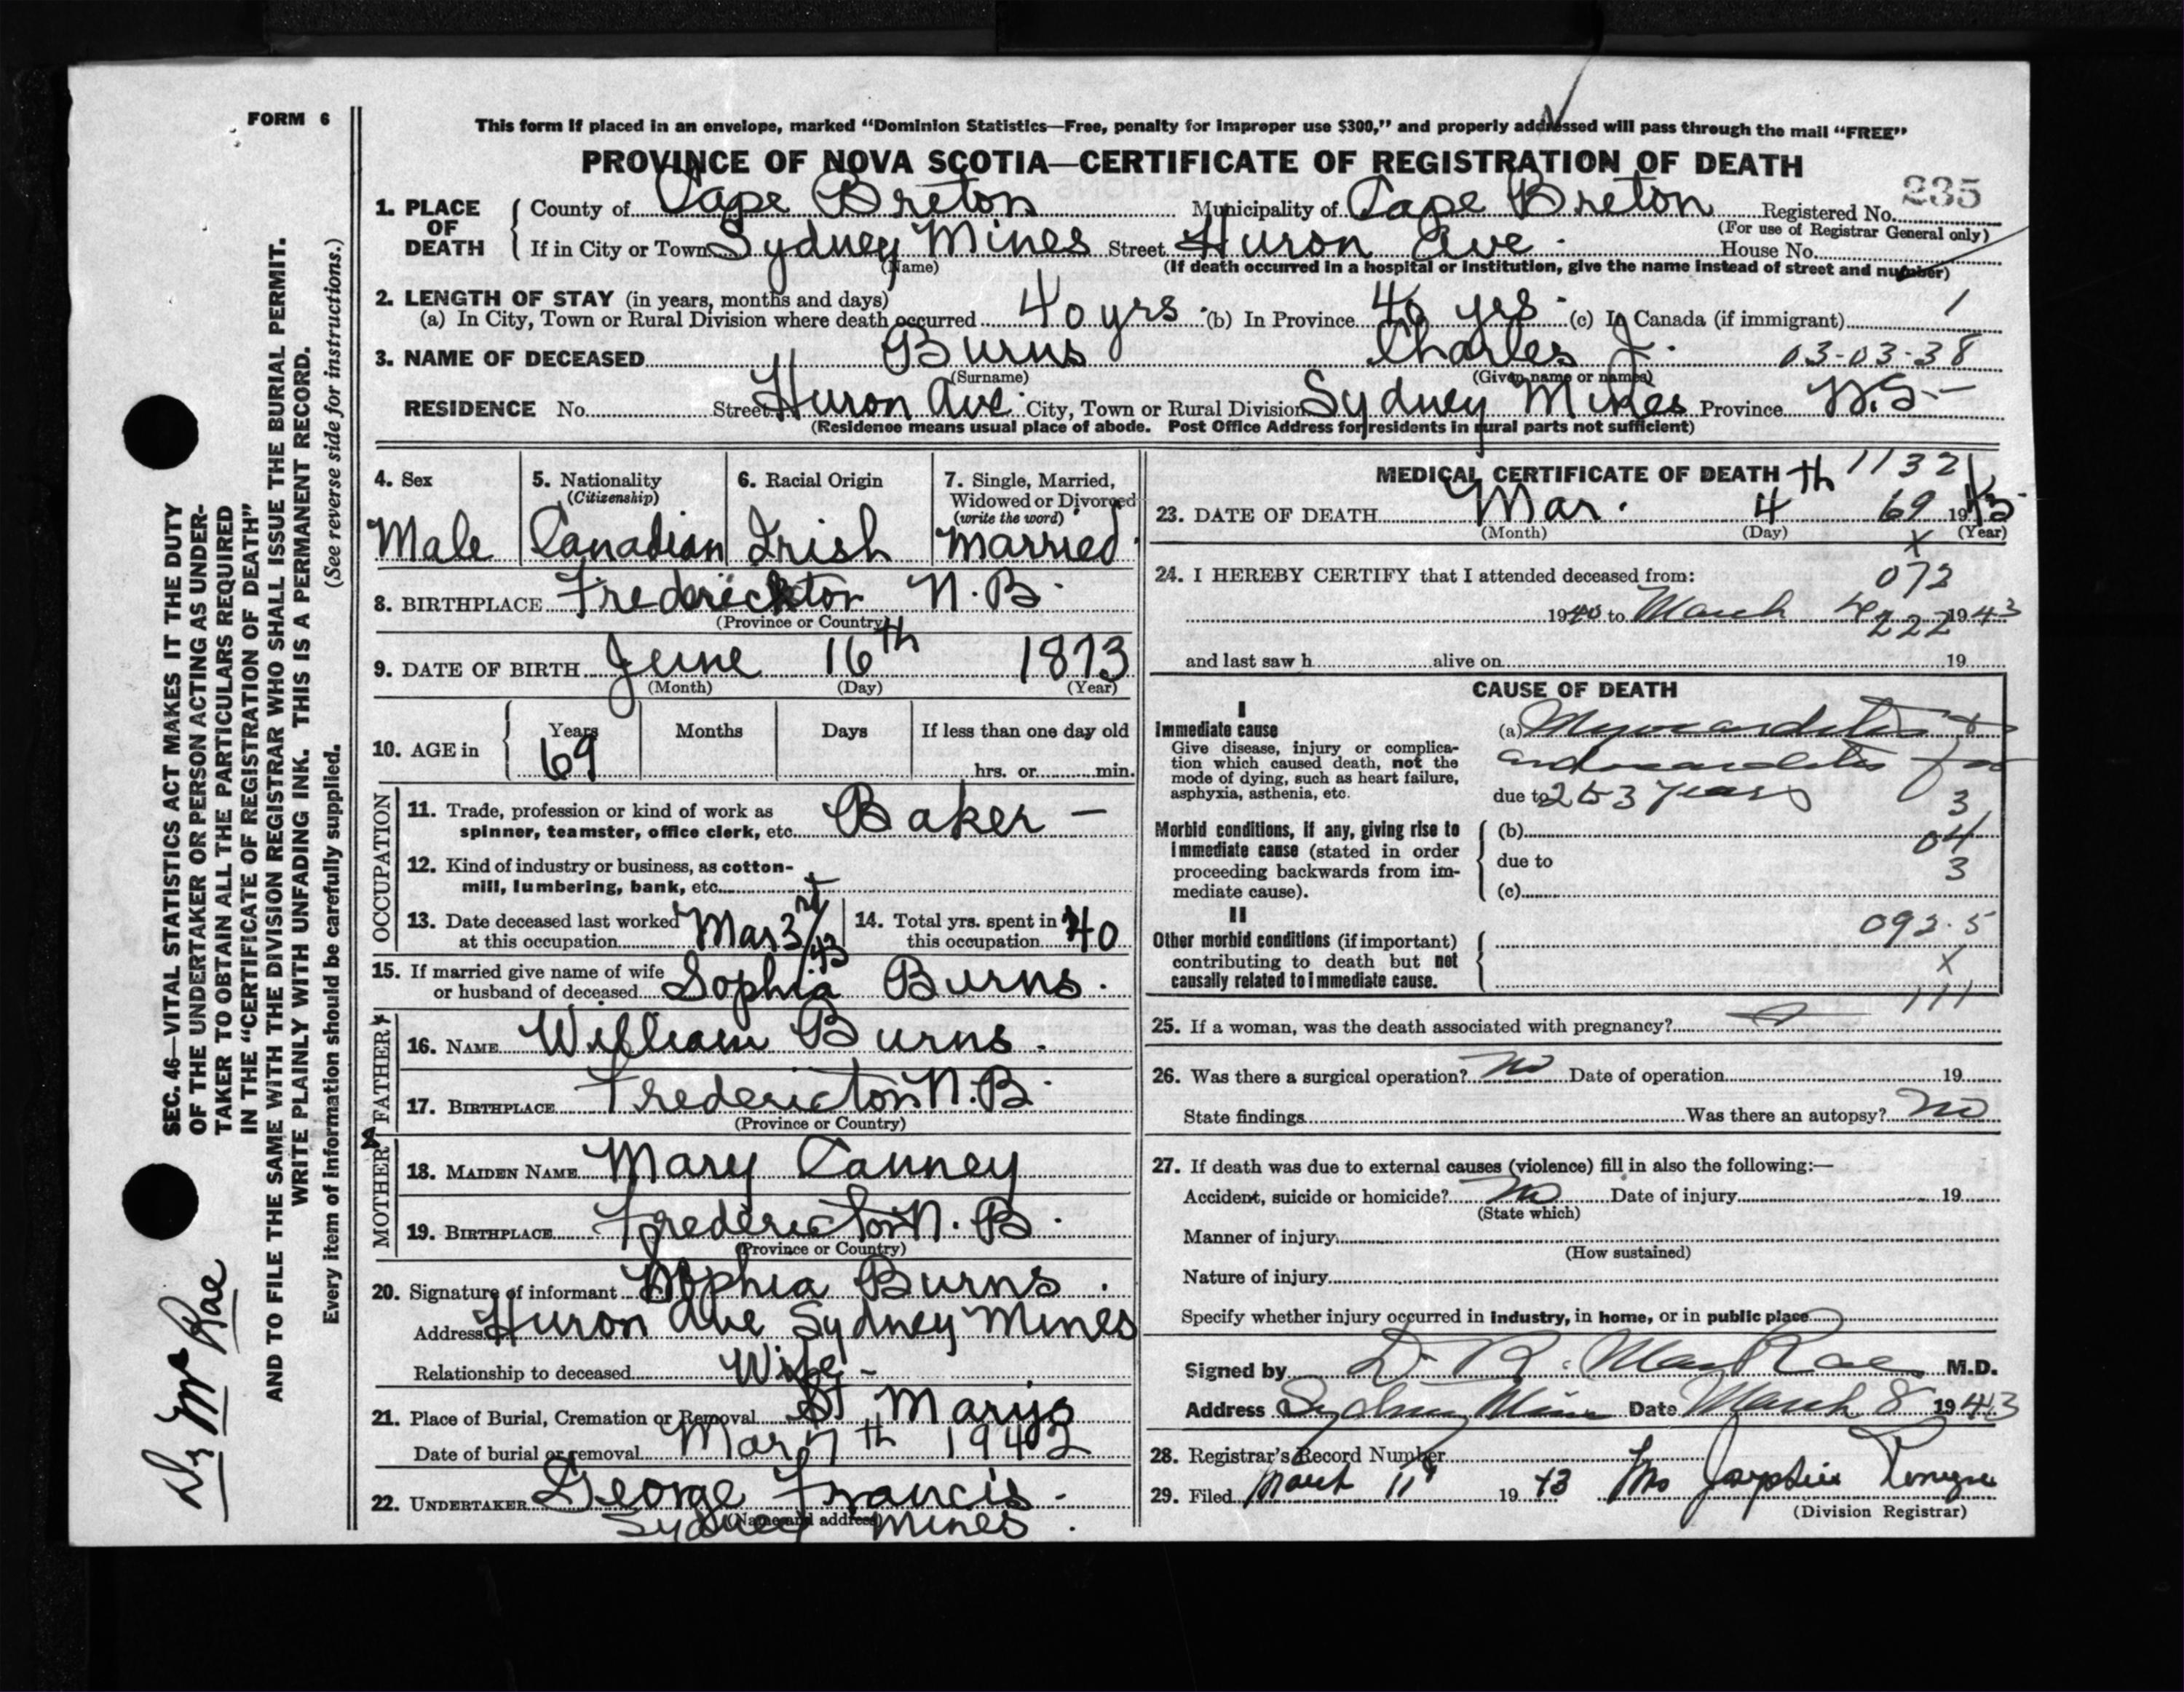 FORM 6
This form if placed in an envelope, marked "Dominion Statistics—Free, penalty for improper use $300," and properly addressed will pass through the mail "FREE"
PROVINCE OF NOVA SCOTIA—CERTIFICATE OF REGISTRATION OF DEATH
235
1. PLACE OF DEATH County of Cape Breton Municipality of Cape Breton Registered No.
(For use of Registrar General only)
If in City or Town Sydney Mines Street Huron Ave. House No.
(Name) (If death occurred in a hospital or institution, give the name instead of street and number)
2. LENGTH OF STAY (in years, months and days)
(a) In City, Town or Rural Division where death occurred 40 yrs. (b) In Province 40 yrs. (c) In Canada (if immigrant) 1
3. NAME OF DECEASED Burns Charles J. 03-03-38
(Surname) (Given name or names)
RESIDENCE No. Street Huron Ave. City, Town or Rural Division Sydney Mines Province N.S-
(Residence means usual place of abode. Post Office Address for residents in rural parts not sufficient)
4. Sex
Male
5. Nationality
(Citizenship)
Canadian
6. Racial Origin
Irish
7. Single, Married, Widowed or Divorced
(write the word)
Married
8. BIRTHPLACE Fredericton N.B.
(Province or Country)
9. DATE OF BIRTH June 16th 1873
(Month) (Day) (Year)
10. AGE in Years Months Days If less than one day old
69 hrs. or min.
OCCUPATION
11. Trade, profession or kind of work as
spinner, teamster, office clerk, etc. Baker -
12. Kind of industry or business, as cotton-
mill, lumbering, bank, etc.
13. Date deceased last worked
at this occupation Mar 3rd/43
14. Total yrs. spent in
this occupation 40
15. If married give name of wife
or husband of deceased Sophia Burns.
FATHER
16. NAME William Burns.
17. BIRTHPLACE Fredericton N.B.
(Province or Country)
MOTHER
18. MAIDEN NAME Mary Canney
19. BIRTHPLACE Fredericton N.B.
(Province or Country)
20. Signature of informant Sophia Burns.
Address Huron Ave Sydney Mines
Relationship to deceased Wife -
21. Place of Burial, Cremation or Removal St Marys
Date of burial or removal Mar 7th 1943
22. UNDERTAKER George Francis.
(Name and address)
Sydney Mines.
MEDICAL CERTIFICATE OF DEATH 1132
23. DATE OF DEATH Mar. 4th 69 1943
(Month) (Day) (Year)
X
24. I HEREBY CERTIFY that I attended deceased from: 072
1940 to March 4 1943
222
and last saw h alive on 19
CAUSE OF DEATH
I
Immediate cause
Give disease, injury or complica-
tion which caused death, not the
mode of dying, such as heart failure,
asphyxia, asthenia, etc.
(a) Myocarditis +
endocarditis for
due to 2 to 3 years
3
Morbid conditions, if any, giving rise to
immediate cause (stated in order
proceeding backwards from im-
mediate cause).
(b) 04
due to 3
(c)
II
Other morbid conditions (if important)
contributing to death but not
causally related to immediate cause.
092.5
X
111
25. If a woman, was the death associated with pregnancy?
26. Was there a surgical operation? No Date of operation 19
State findings Was there an autopsy? No
27. If death was due to external causes (violence) fill in also the following:—
Accident, suicide or homicide? No Date of injury 19
(State which)
Manner of injury
(How sustained)
Nature of injury
Specify whether injury occurred in industry, in home, or in public place
Signed by D. R. MacRae M.D.
Address Sydney Mines Date March 8 1943
28. Registrar's Record Number
29. Filed March 11 1943 Mrs Josephine
(Division Registrar)
SEC. 46—VITAL STATISTICS ACT MAKES IT THE DUTY
OF THE UNDERTAKER OR PERSON ACTING AS UNDER-
TAKER TO OBTAIN ALL THE PARTICULARS REQUIRED
IN THE "CERTIFICATE OF REGISTRATION OF DEATH"
AND TO FILE THE SAME WITH THE DIVISION REGISTRAR WHO SHALL ISSUE THE BURIAL PERMIT.
WRITE PLAINLY WITH UNFADING INK. THIS IS A PERMANENT RECORD.
Every item of information should be carefully supplied. (See reverse side for instructions.)
Dr McRae